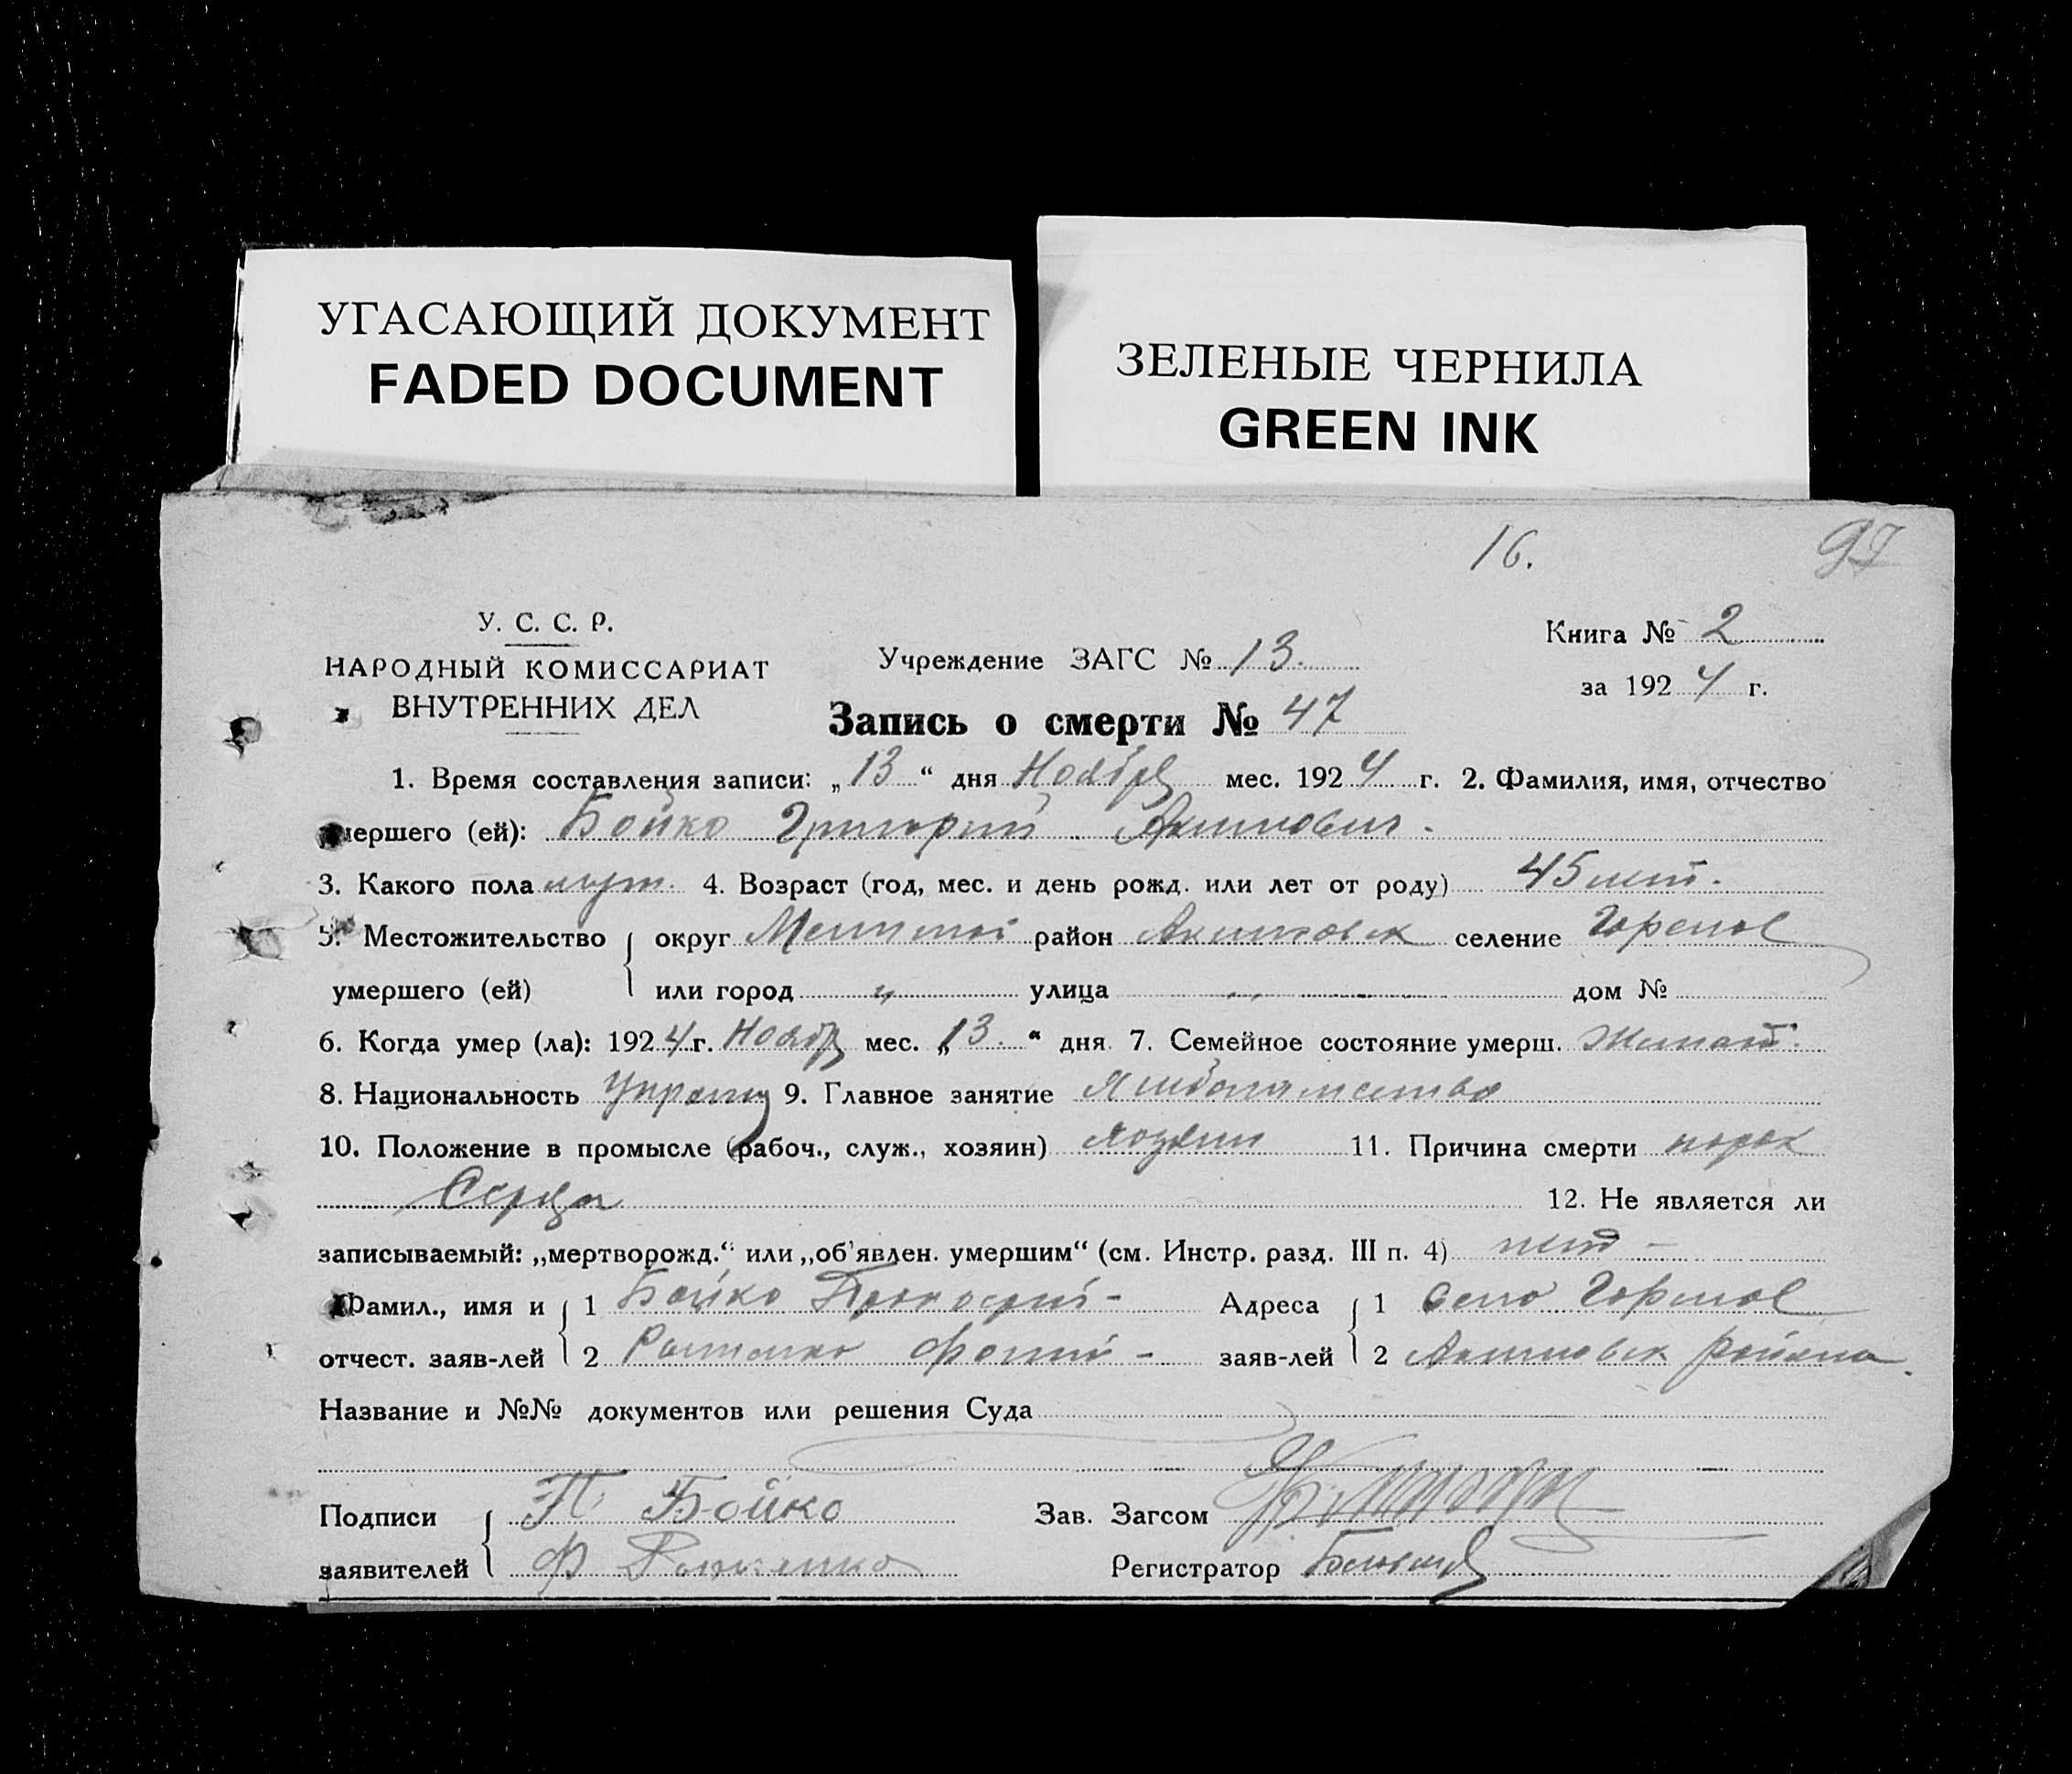 УГАСАЮЩИЙ ДОКУМЕНТ
FADED DOCUMENT
ЗЕЛЕНЫЕ ЧЕРНИЛА
GREEN INK
16.
97
У. С. С. Р.
НАРОДНЫЙ КОМИССАРИАТ
ВНУТРЕННИХ ДЕЛ
Учреждение ЗАГС № 13.
Книга № 2
за 1924 г.
Запись о смерти № 47
1. Время составления записи: „13“ дня Ноября мес. 1924 г. 2. Фамилия, имя, отчество
умершего (ей): Бойко Григорий Акимович.
3. Какого пола муж. 4. Возраст (год, мес. и день рожд. или лет от роду) 45 лет.
5. Местожительство округ Мелитоп район Акимовск селение Горелое
умершего (ей) или город „ улица „ дом №
6. Когда умер (ла): 1924 г. Ноябр мес. „13.“ дня 7. Семейное состояние умерш. Женат.
8. Национальность Украин 9. Главное занятие Хлебопашество
10. Положение в промысле (рабоч., служ., хозяин) хозяин 11. Причина смерти порок
Сердца 12. Не является ли
записываемый: „мертворожд.“ или „об'явлен. умершим“ (см. Инстр. разд. III п. 4) нет –
Фамил., имя и 1 Бойко Прокофий – Адреса 1 Село Горелое
отчест. заяв-лей 2 Фотий – заяв-лей 2 Акимовск района.
Название и №№ документов или решения Суда
Подписи П Бойко Зав. Загсом
заявителей Ф Регистратор